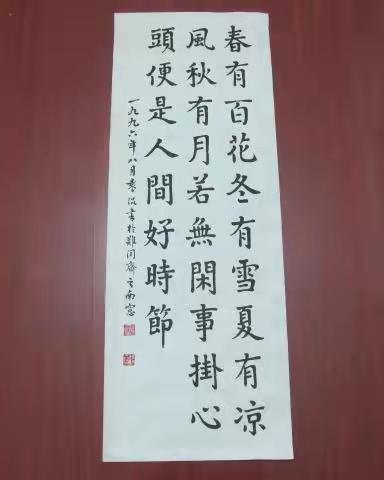 春有百花冬有雪夏有凉
風秋有月若無閑事掛心
頭便是人間好時節
一九九六年八月書於南窓